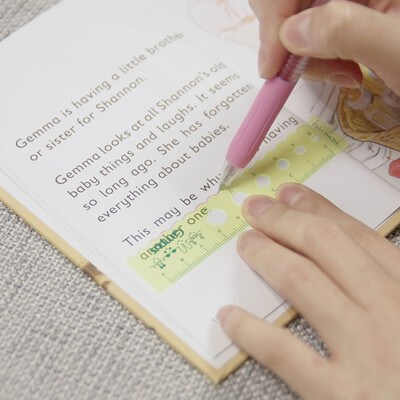 Gemma is having a little brother
or sister for Shannon.
Gemma looks at all Shannon's old
baby things and laughs. It seems
so long ago. She has forgotten
everything about babies.
This may be why having
one